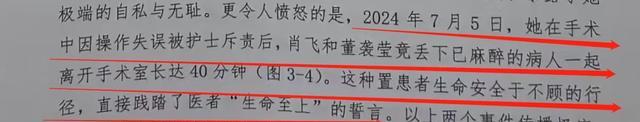 极端的自私与无耻。更令人愤怒的是，2024 年 7 月 5 日，她在手术
中因操作失误被护士斥责后，肖飞和董袭莹竟丢下已麻醉的病人一起
离开手术室长达 40 分钟（图 3-4）。这种置患者生命安全于不顾的行
径，直接践踏了医者“生命至上”的誓言。以上两个事件传播极